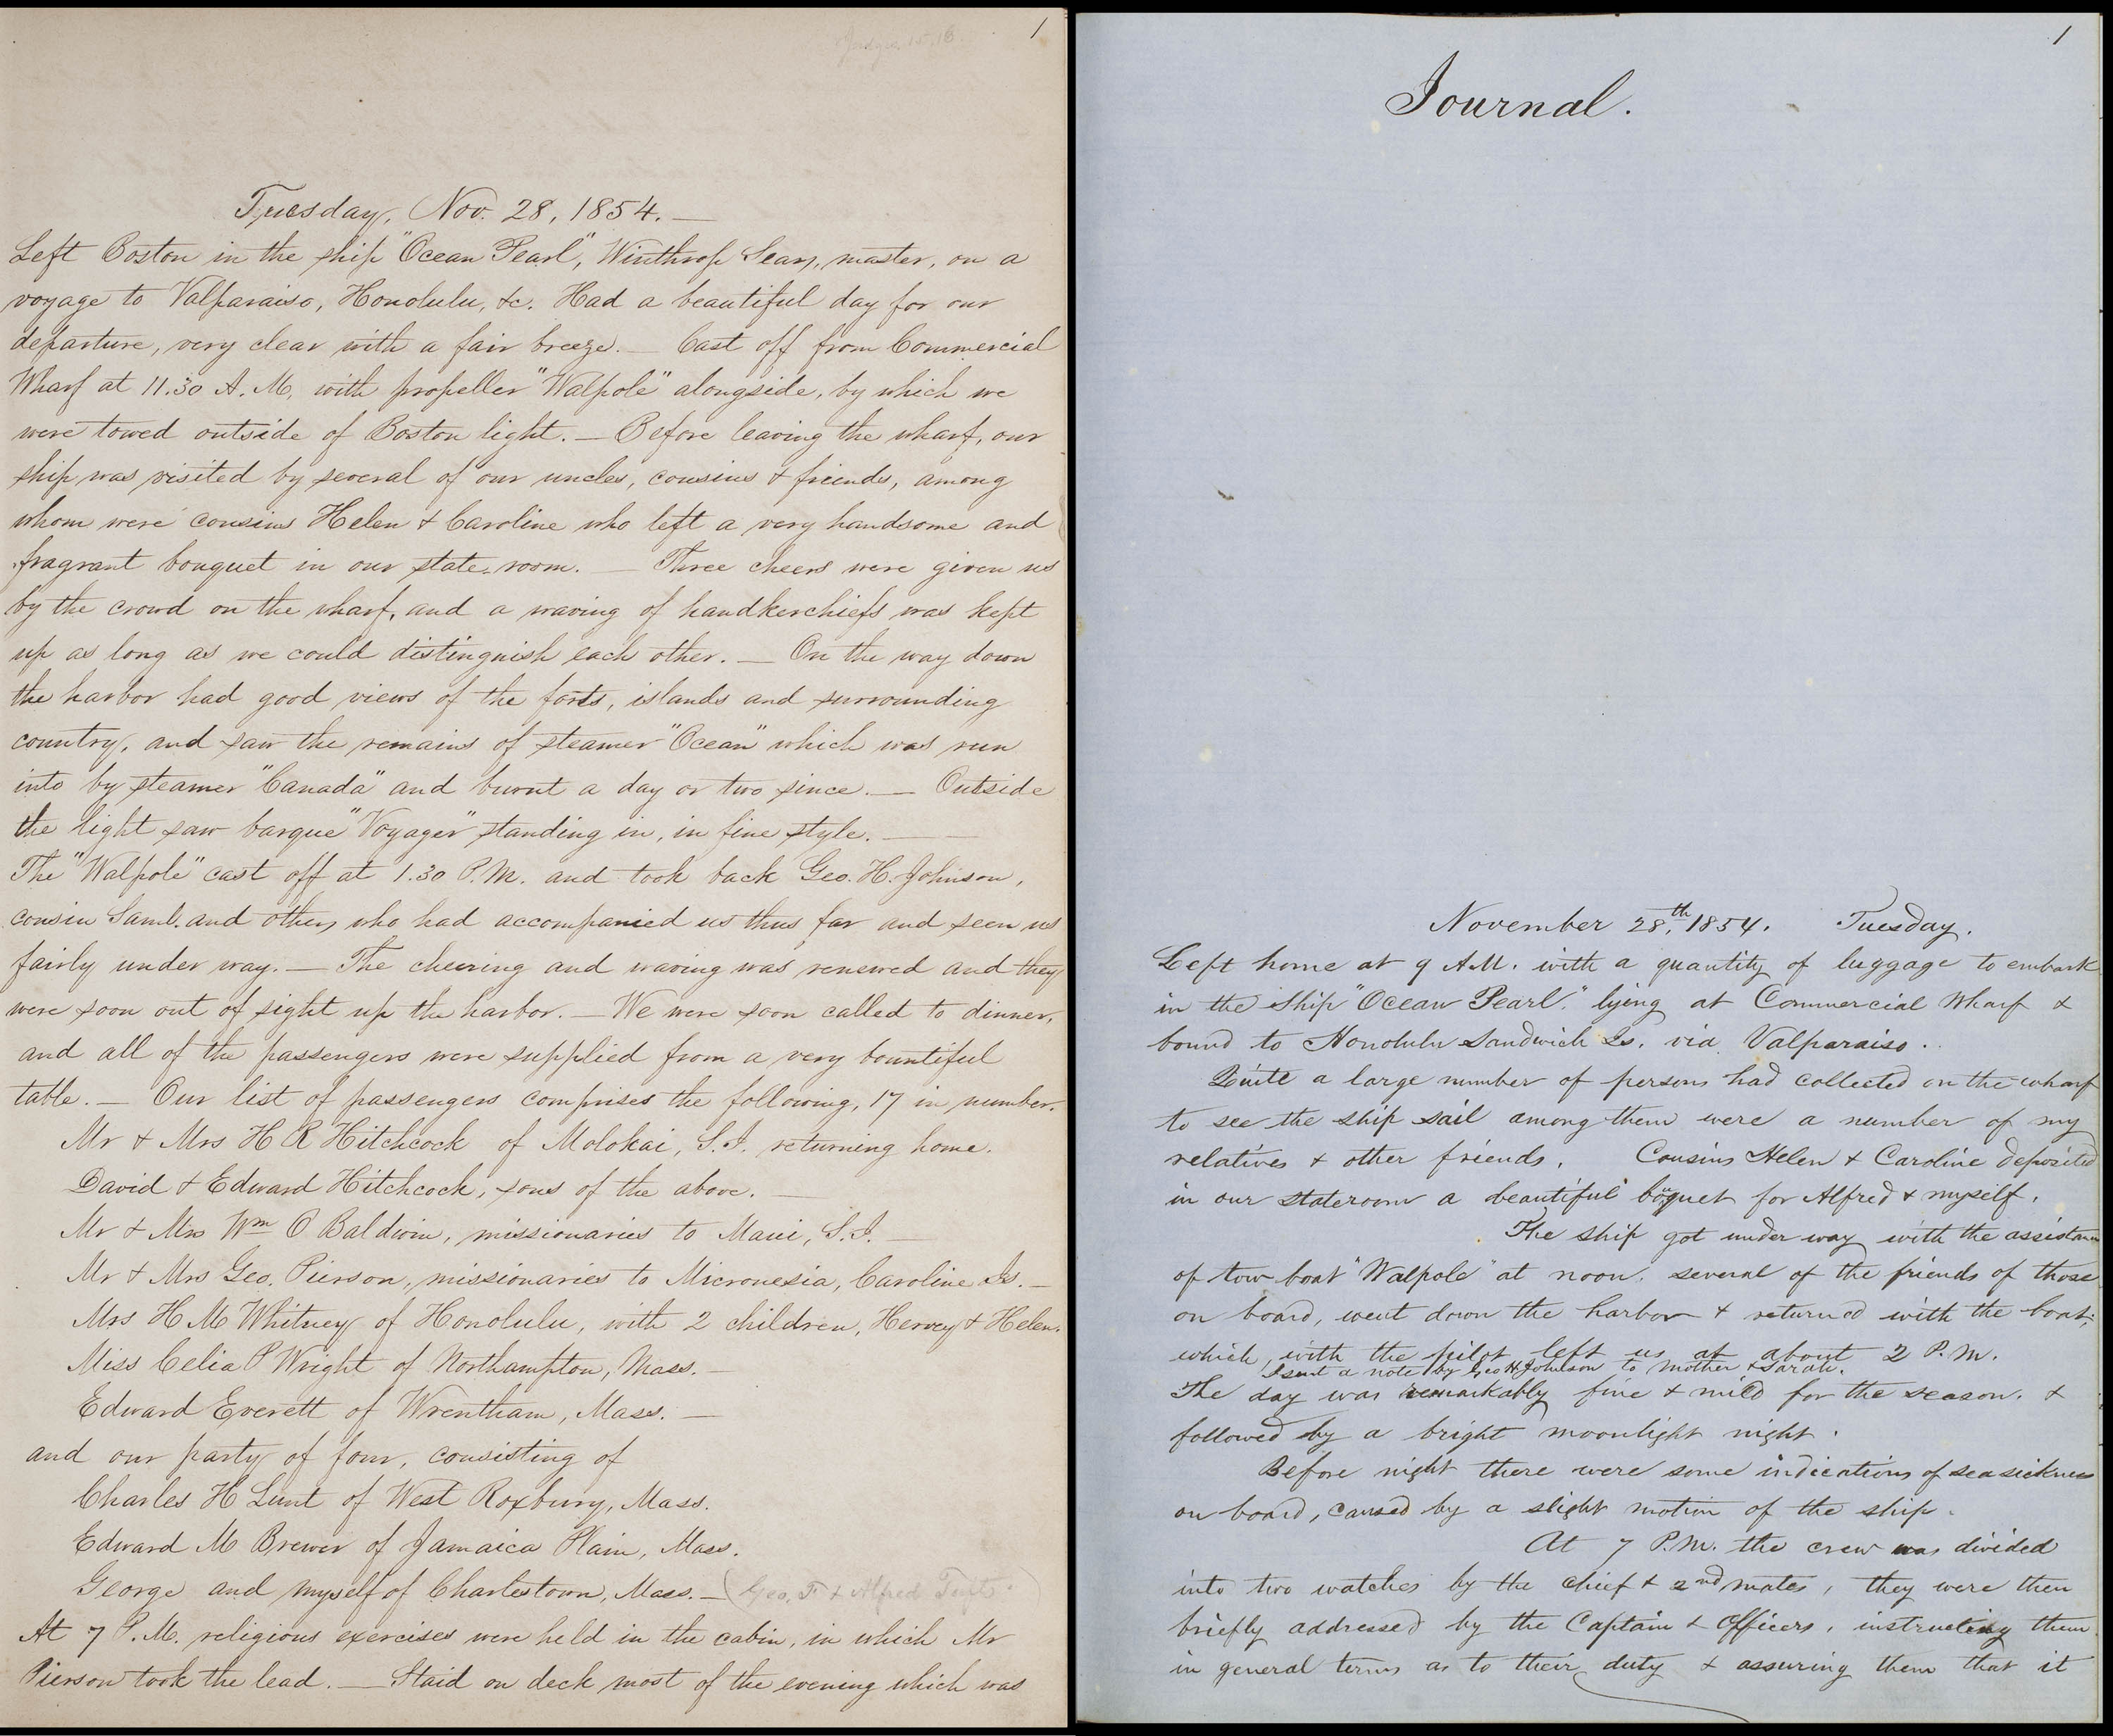 1
Tuesday, Nov. 28, 1854. —
Left Boston in the ship "Ocean Pearl", Winthrop Sears, master, on a
voyage to Valparaiso, Honolulu, &c. Had a beautiful day for our
departure, very clear with a fair breeze. — Cast off from Commercial
Wharf at 11.30 A.M. with propeller "Walpole" alongside, by which we
were towed outside of Boston light. — Before leaving the wharf, our
ship was visited by several of our uncles, cousins & friends, among
whom were cousins Helen & Caroline who left a very handsome and
fragrant bouquet in our state-room. — Three cheers were given us
by the crowd on the wharf, and a waving of handkerchiefs was kept
up as long as we could distinguish each other. — On the way down
the harbor had good views of the forts, islands and surrounding
country, and saw the remains of steamer "Ocean" which was run
into by steamer "Canada" and burnt a day or two since. — Outside
the light saw barque "Voyager" standing in, in fine style. —
The "Walpole" cast off at 1.30 P.M. and took back Geo. H. Johnson,
cousin Saml. and others who had accompanied us thus far and seen us
fairly under way. — The cheering and waving was renewed and they
were soon out of sight up the harbor. — We were soon called to dinner,
and all of the passengers were supplied from a very bountiful
table. — Our list of passengers comprises the following, 17 in number.
Mr & Mrs H R Hitchcock of Molokai, S.I. returning home.
David & Edward Hitchcock, sons of the above. —
Mr & Mrs Wm O Baldwin, missionaries to Maui, S.I. —
Mr & Mrs Geo. Pierson, missionaries to Micronesia, Caroline Is. —
Mrs H M Whitney of Honolulu, with 2 children, Hervey & Helen.
Miss Celia P Wright of Northampton, Mass. —
Edward Everett of Wrentham, Mass. —
and our party of four, consisting of
Charles H Lunt of West Roxbury, Mass.
Edward M Brewer of Jamaica Plain, Mass.
George and myself of Charlestown, Mass. — (Geo. F. & Alfred Tufts)
At 7 P.M. religious exercises were held in the cabin, in which Mr
Pierson took the lead. — Staid on deck most of the evening which was
1
Journal.
November 28th, 1854. Tuesday.
Left home at 9 A.M. with a quantity of luggage to embark
in the ship "Ocean Pearl," lying at Commercial Wharf &
bound to Honolulu Sandwich Is. via Valparaiso.
Quite a large number of persons had collected on the wharf
to see the ship sail among them were a number of my
relatives & other friends. Cousins Helen & Caroline deposited
in our stateroom a beautiful boquet for Alfred & myself.
The ship got under way with the assistance
of tow boat "Walpole" at noon. several of the friends of those
on board, went down the harbor & returned with the boat,
which, with the pilot left us at about 2 P.M.
I sent a note by Geo H Johnson to Mother & Sarah.
The day was remarkably fine & mild for the season. &
followed by a bright moonlight night.
Before night there were some indications of seasickness
on board, caused by a slight motion of the ship.
At 7 P.M. the crew was divided
into two watches by the chief & 2nd mates, they were then
briefly addressed by the Captain & Officers, instructing them
in general terms as to their duty & assuring them that it